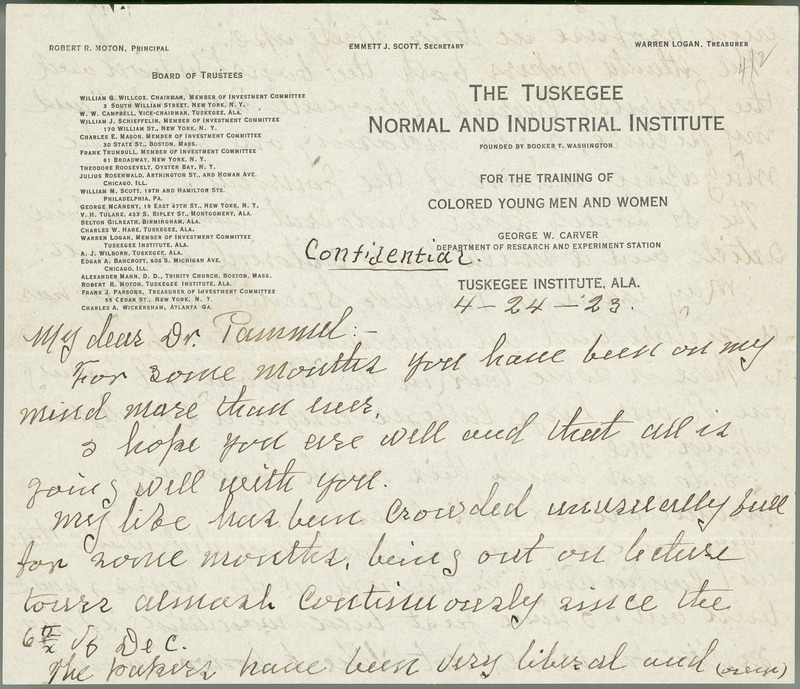 ROBERT R. MOTON, PRINCIPAL
EMMETT J. SCOTT, SECRETARY
WARREN LOGAN, TREASURER
BOARD OF TRUSTEES
WILLIAM G. WILLCOX, CHAIRMAN, MEMBER OF INVESTMENT COMMITTEE
3 SOUTH WILLIAM STREET, NEW YORK, N. Y.
W. W. CAMPBELL, VICE-CHAIRMAN, TUSKEGEE, ALA.
WILLIAM J. SCHIEFFELIN, MEMBER OF INVESTMENT COMMITTEE
170 WILLIAM ST., NEW YORK, N. Y.
CHARLES E. MASON, MEMBER OF INVESTMENT COMMITTEE
30 STATE ST., BOSTON, MASS.
FRANK TRUMBULL, MEMBER OF INVESTMENT COMMITTEE
61 BROADWAY, NEW YORK, N. Y.
THEODORE ROOSEVELT, OYSTER BAY, N. Y.
JULIUS ROSENWALD, ARTHINGTON ST., AND HOMAN AVE.
CHICAGO, ILL.
WILLIAM M. SCOTT, 19TH AND HAMILTON STS.
PHILADELPHIA, PA.
GEORGE MCANENY, 19 EAST 47TH ST., NEW YORK, N. Y.
V. H. TULANE, 433 S. RIPLEY ST., MONTGOMERY, ALA.
BELTON GILREATH, BIRMINGHAM, ALA.
CHARLES W. HARE, TUSKEGEE, ALA.
WARREN LOGAN, MEMBER OF INVESTMENT COMMITTEE
TUSKEGEE INSTITUTE, ALA.
A. J. WILBORN, TUSKEGEE, ALA.
EDGAR A. BANCROFT, 606 S. MICHIGAN AVE.
CHICAGO, ILL.
ALEXANDER MANN, D. D., TRINITY CHURCH, BOSTON, MASS.
ROBERT R. MOTON, TUSKEGEE INSTITUTE, ALA.
FRANK J. PARSONS, TREASURER OF INVESTMENT COMMITTEE
55 CEDAR ST., NEW YORK, N. Y.
CHARLES A. WICKERSHAM, ATLANTA GA.
THE TUSKEGEE
NORMAL AND INDUSTRIAL INSTITUTE
FOUNDED BY BOOKER T. WASHINGTON
FOR THE TRAINING OF
COLORED YOUNG MEN AND WOMEN
GEORGE W. CARVER
DEPARTMENT OF RESEARCH AND EXPERIMENT STATION
Confidential.
TUSKEGEE INSTITUTE, ALA.
4-24-23.
My dear Dr. Pammel:-
For some months you have been on my
mind more than ever.
I hope you are well and that all is
going well with you.
My life has been crowded unusually full
for some months, being out on lecture
tours almost continuously since the
6th of Dec.
The papers have been very liberal and (even)